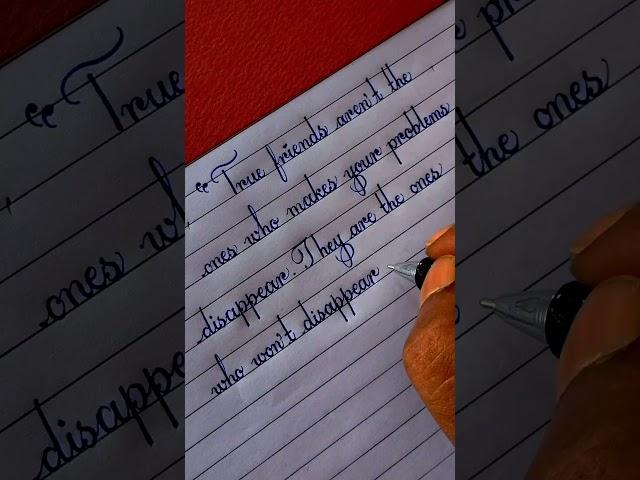 "True friends aren't the
ones who makes your problems
disappear. They are the ones
who won't disappear